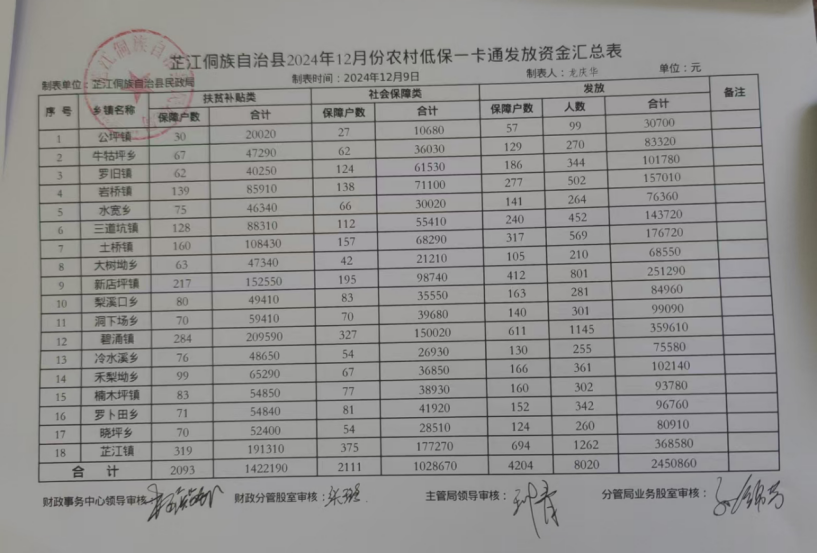 芷江侗族自治县2024年12月份农村低保一卡通发放资金汇总表
制表单位：芷江侗族自治县民政局 制表时间：2024年12月9日 制表人：龙庆华 单位：元
序号 乡镇名称 扶贫补贴类 社会保障类 发放 备注
保障户数 合计 保障户数 合计 保障户数 人数 合计
1 公坪镇 30 20020 27 10680 57 99 30700
2 牛牯坪乡 67 47290 62 36030 129 270 83320
3 罗旧镇 62 40250 124 61530 186 344 101780
4 岩桥镇 139 85910 138 71100 277 502 157010
5 水宽乡 75 46340 66 30020 141 264 76360
6 三道坑镇 128 88310 112 55410 240 452 143720
7 土桥镇 160 108430 157 68290 317 569 176720
8 大树坳乡 63 47340 42 21210 105 210 68550
9 新店坪镇 217 152550 195 98740 412 801 251290
10 梨溪口乡 80 49410 83 35550 163 281 84960
11 洞下场乡 70 59410 70 39680 140 301 99090
12 碧涌镇 284 209590 327 150020 611 1145 359610
13 冷水溪乡 76 48650 54 26930 130 255 75580
14 禾梨坳乡 99 65290 67 36850 166 361 102140
15 楠木坪镇 83 54850 77 38930 160 302 93780
16 罗卜田乡 71 54840 81 41920 152 342 96760
17 晓坪乡 70 52400 54 28510 124 260 80910
18 芷江镇 319 191310 375 177270 694 1262 368580
合计 2093 1422190 2111 1028670 4204 8020 2450860
财政事务中心领导审核： 财政分管股室审核： 主管局领导审核： 分管局业务股室审核：